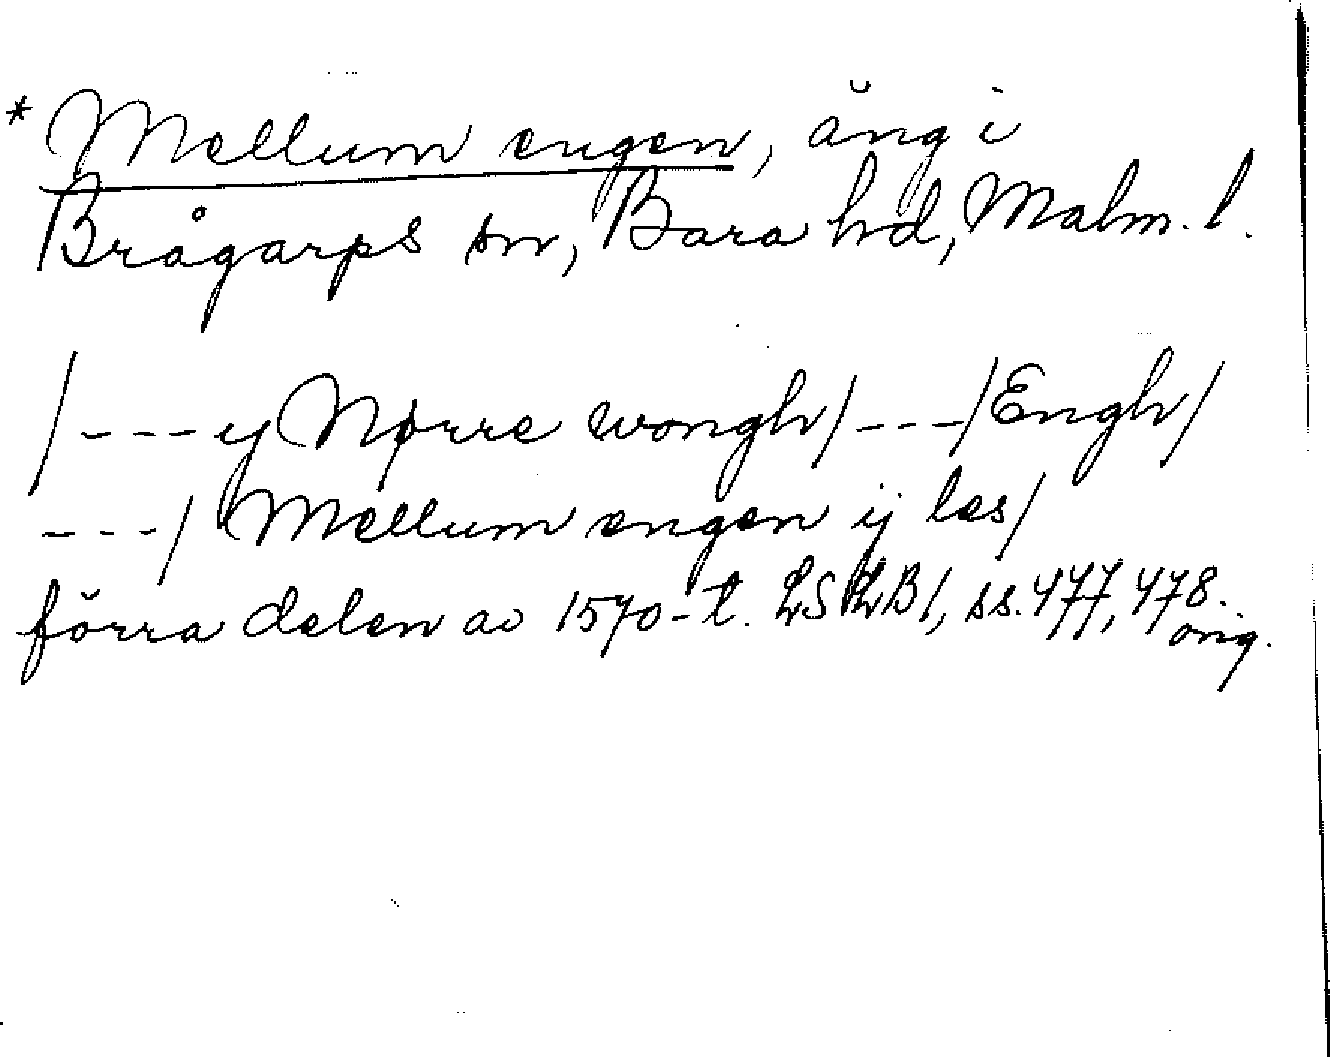 * Mellum engen, äng i
Brågarps sn, Bara hd, Malm. l.
/---y Nørre wongh/---/Engh/
---/ Mellum engen ij les/
förra delen av 1570-t. LSLB1, ss. 477, 478.
orig.